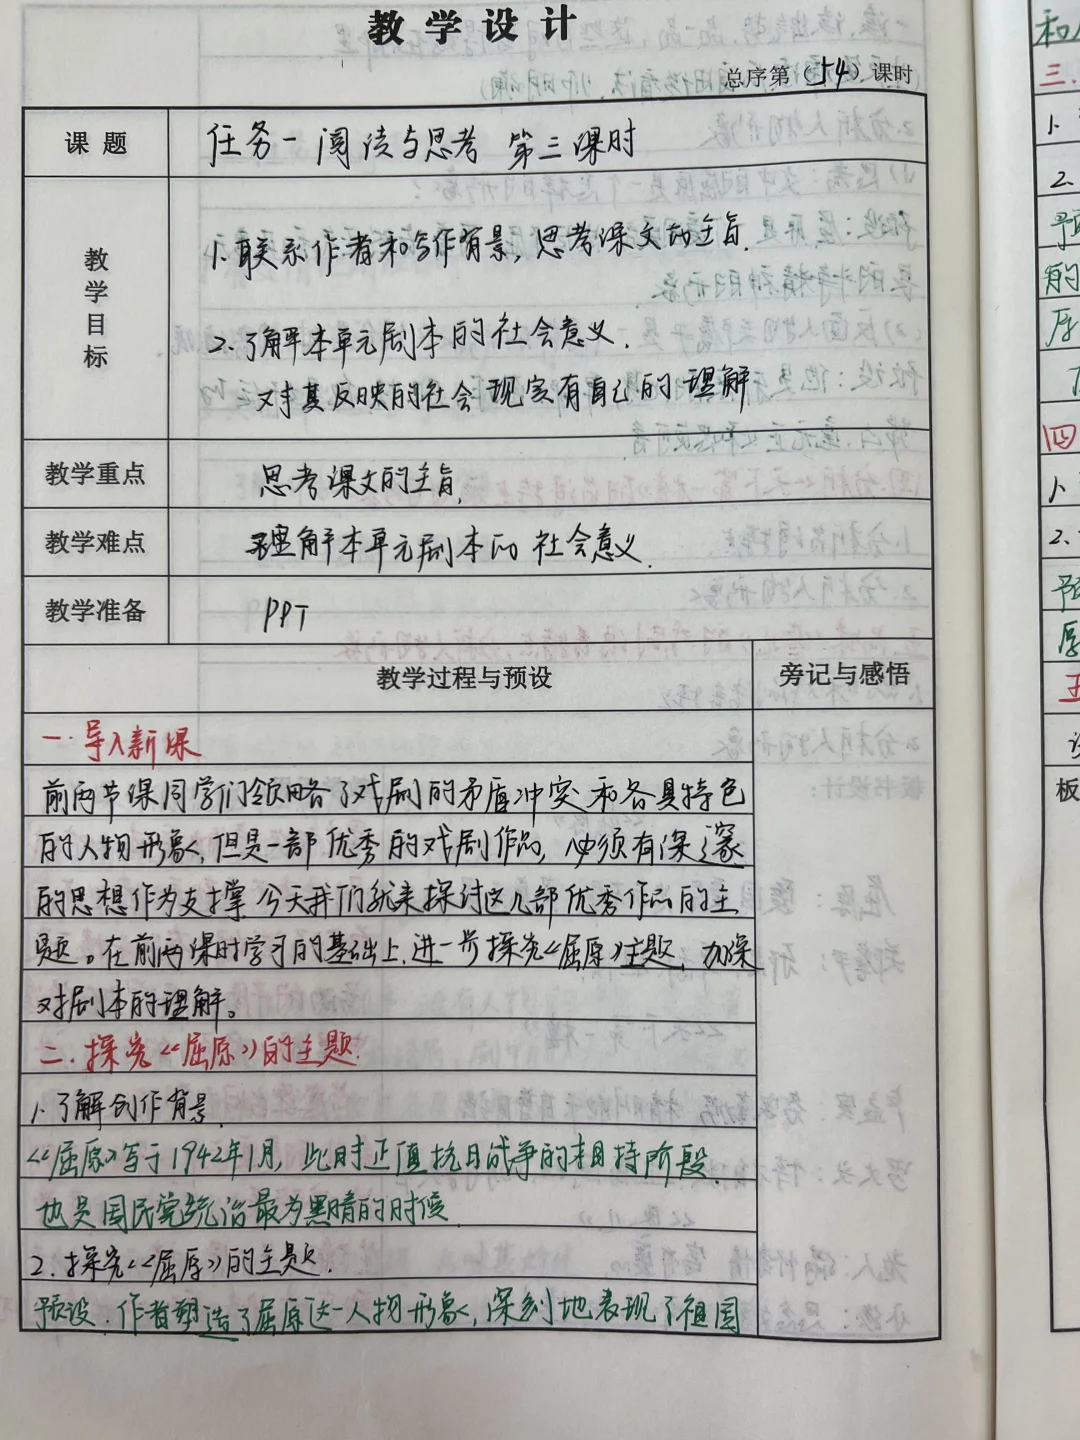 教学设计
总序第（54）课时
课题
任务一 阅读与思考 第三课时
教学目标
1.联系作者和写作背景，思考课文的主旨.
2.了解本单元剧本的社会意义.
对其反映的社会现实有自己的理解
教学重点
思考课文的主旨.
教学难点
理解本单元剧本的社会意义.
教学准备
PPT
教学过程与预设
旁记与感悟
一.导入新课
前两节课同学们领略了戏剧的矛盾冲突和各具特色
的人物形象,但是一部优秀的戏剧作品,必须有深邃
的思想作为支撑 今天我们就来探讨这几部优秀作品的主
题。在前两课时学习的基础上,进一步探究《屈原》主题,加深
对剧本的理解。
二.探究《屈原》的主题.
1.了解创作背景
《屈原》写于1942年1月,此时正值抗日战争的相持阶段.
也是国民党统治最为黑暗的时候
2.探究《屈原》的主题.
预设.作者塑造了屈原这一人物形象,深刻地表现了祖国
三.
1.
2.
的
四
1.
2.
板